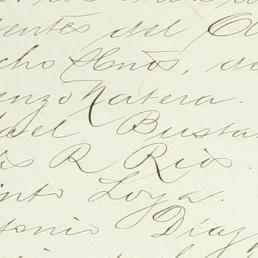 entes del
cho Hños, de
enzo Natera.
ael Busta
R. Rios.
into Loya.
tonio Díaz